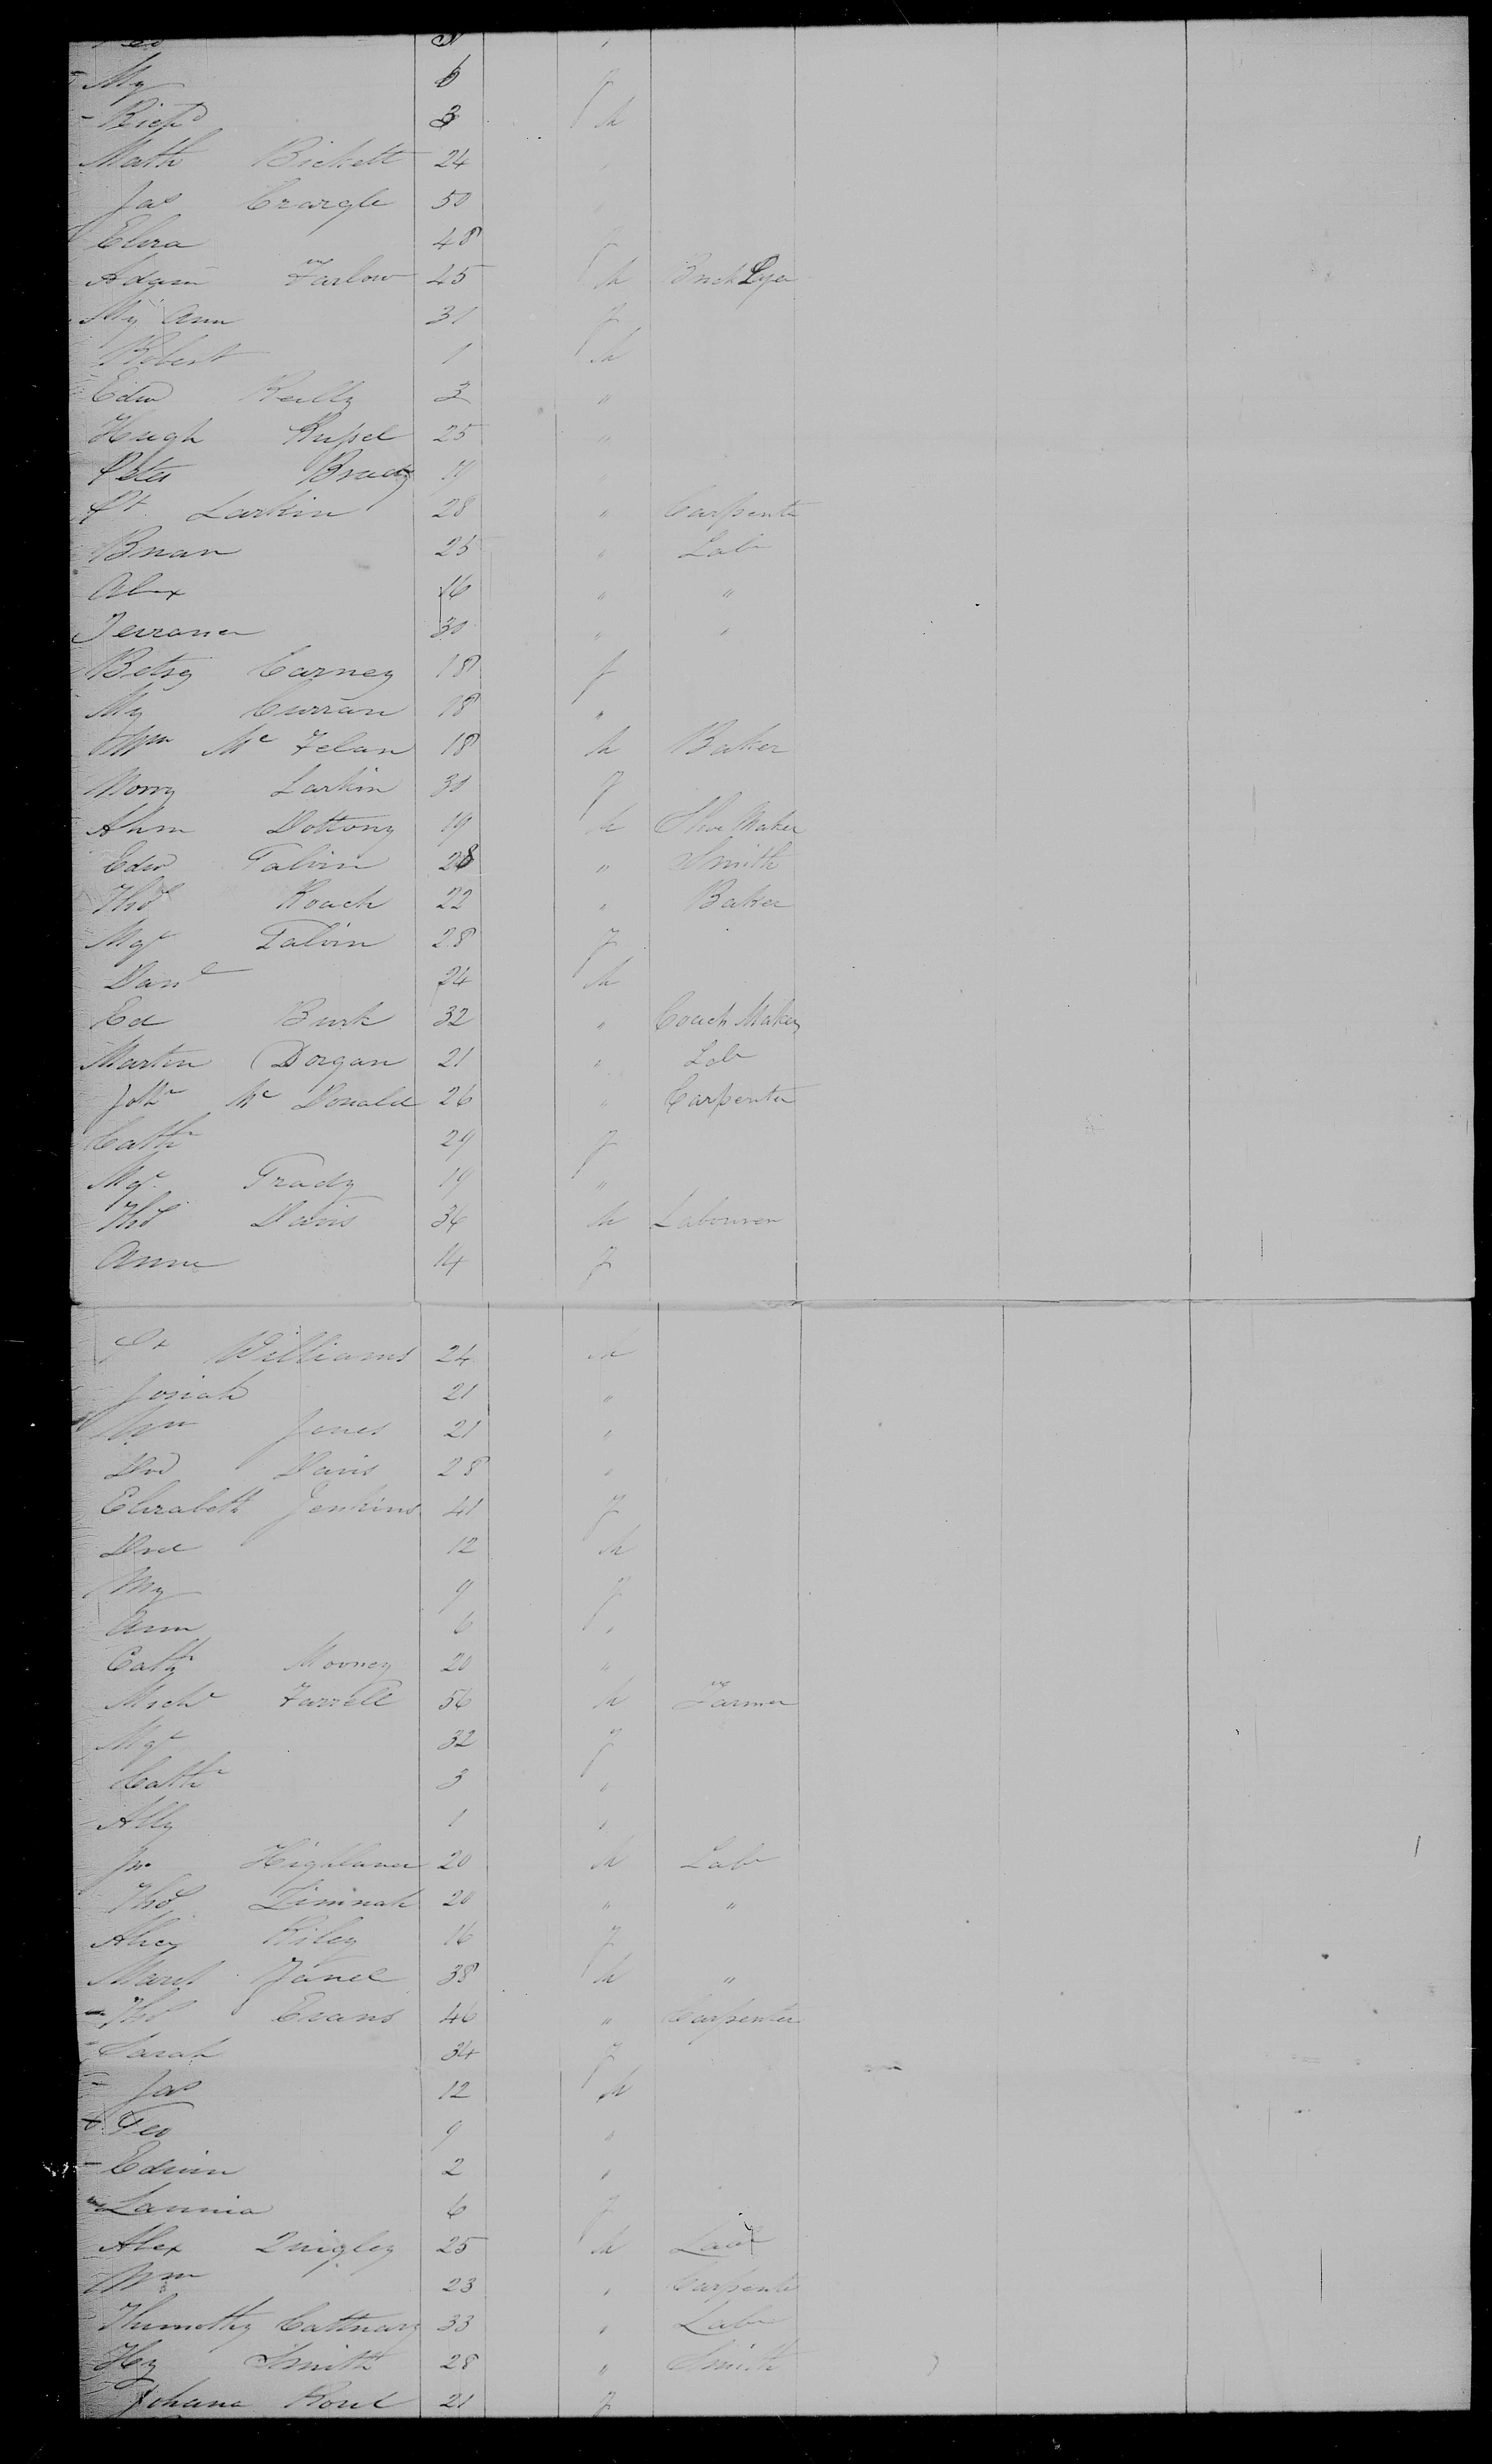 My 6 f
Richd 3 M
Math Bickett 24 "
Jas Crargle 50 "
Eliza 48 f
Adam Farlow 45 M Brick Lyer
My Ann 31 f
Robert 1 M
Edwd Reilly 3 "
Hugh Russel 25 "
Peter Brady "
Pt Larkin 28 " Carpenter
Brian 25 " Labr
Alex 16 " "
30 " "
Betsy Carney 18 f
My Curran 18 "
Wm Mc Felan 18 M Baker
Larkin 30 f
19 M Shoe Maker
Edwd Galvin 28 " Smith
Thos Roach 22 " Baker
Mgt Galvin 28 f
Danl 24 M
Ed Burk 32 " Coach Maker
Martin Dorgan 21 " Labr
Mc Donald 26 " Carpenter
Cathr 29 f
Mgt Grady 19 "
Thos Davis 36 M Labourer
Anne 14 f
Pt Williams 24 M
Josiah 21 "
Wm Jones 21 "
Dvd Davis 28 "
Elizabeth Jenkins 41 f
Dvd 12 M
My 9 f
Ann 6 "
Cath Mooney 20 "
Michl Farrell 56 M Farmer
Mgt 32 f
Cathr 3 "
Ally 1 "
Jno 20 M Labr
Thos 20 " "
Alicy Riley 16 f
38 M "
Thos Evans 46 " Carpenter
Sarah 34 f
Jas 12 M
Geo 9 "
Edwin 2 "
Lavinia 6 f
Alex Quigley 25 M Labr
Wm 23 " Carpenter
Thimothy 33 " Labr
Hy Smith 28 " Smith
Johana 21 f